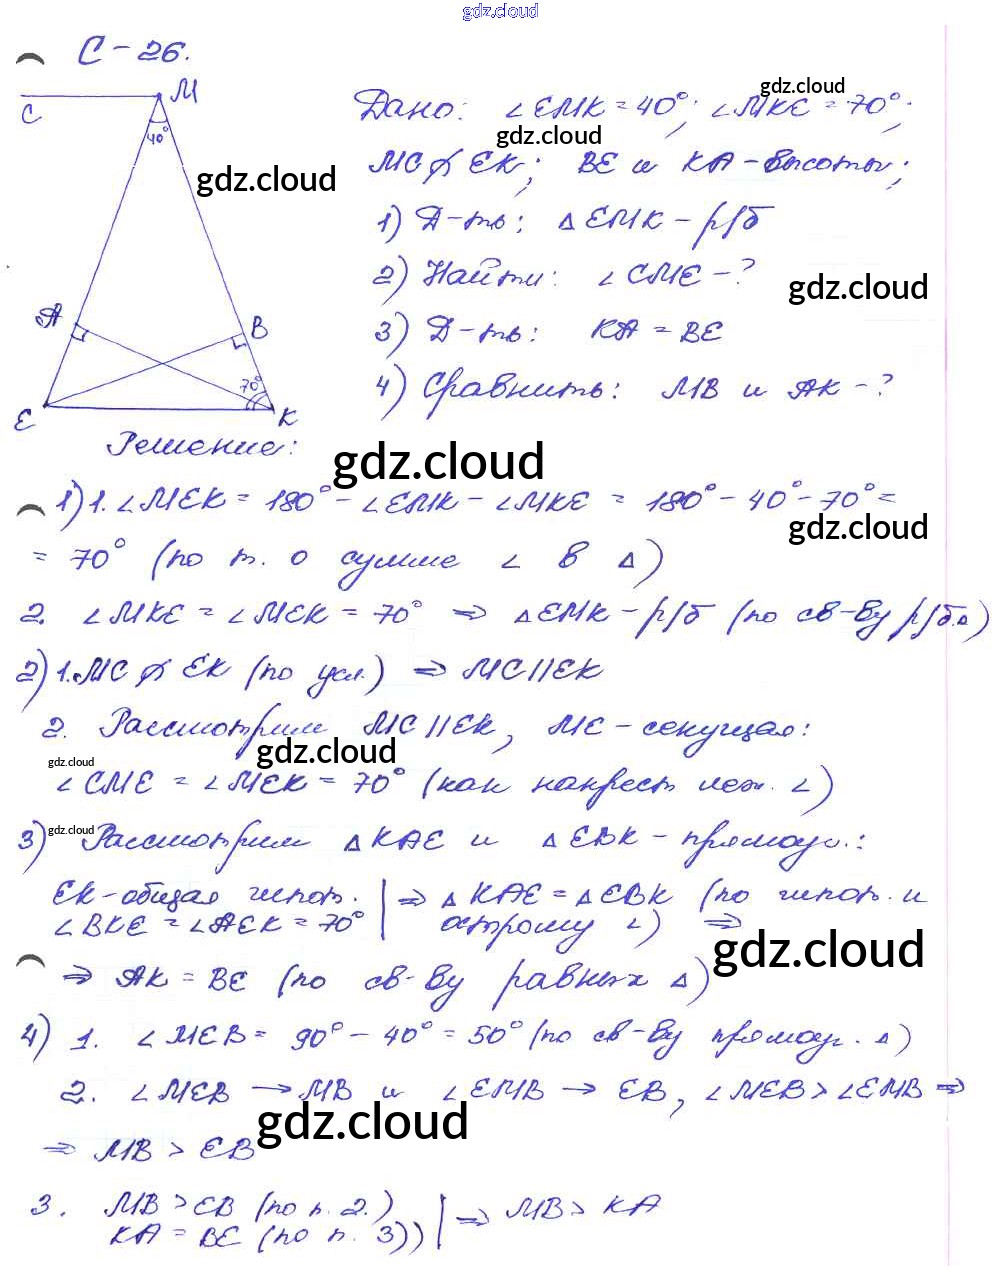 gdz.cloud
С-26.
М
С
40°
А
В
70°
Е
К
Дано: ∠EMK = 40°; ∠MKE = 70°;
MC ∦ EK; BE и KA - высоты;
1) Д-ть: △EMK - р/б
2) Найти: ∠CME - ?
3) Д-ть: KA = BE
4) Сравнить: MB и AK - ?
gdz.cloud
gdz.cloud
gdz.cloud
gdz.cloud
Решение:
gdz.cloud
1) 1. ∠MEK = 180° - ∠EMK - ∠MKE = 180° - 40° - 70° =
gdz.cloud
= 70° (по т. о сумме ∠ в △)
2. ∠MKE = ∠MEK = 70° ⇒ △EMK - р/б (по св-ву р/б △)
2) 1. MC ∦ EK (по усл.) ⇒ MC || EK
2. Рассмотрим MC || EK, ME - секущая:
gdz.cloud
gdz.cloud
∠CME = ∠MEK = 70° (как накрест леж. ∠)
3) Рассмотрим △KAE и △EBK - прямоуг.:
gdz.cloud
EK - общая гипот. | ⇒ △KAE = △EBK (по гипот. и
∠BKE = ∠AEK = 70° | острому ∠) ⇒
gdz.cloud
⇒ AK = BE (по св-ву равных △)
4) 1. ∠MEB = 90° - 40° = 50° (по св-ву прямоуг. △)
2. ∠MEB → MB и ∠EMB → EB, ∠MEB > ∠EMB ⇒
gdz.cloud
⇒ MB > EB
3. MB > EB (по п. 2.) | ⇒ MB > KA
KA = BE (по п. 3)) |